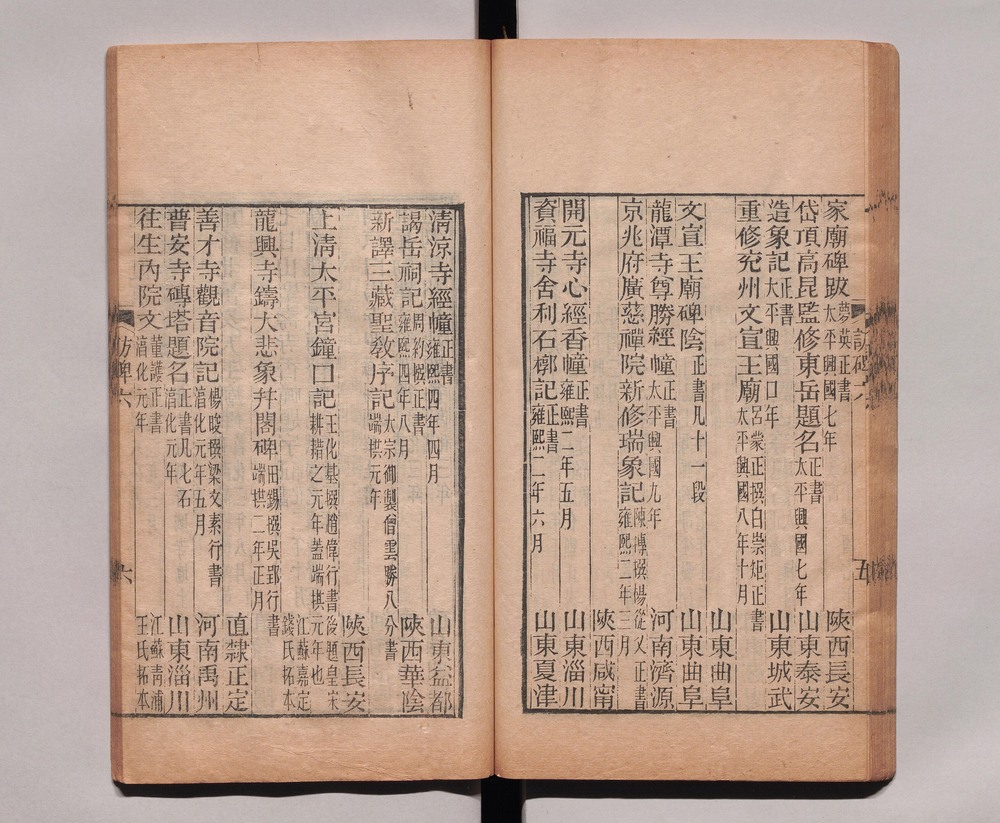 家廟碑跋 夢英正書 太平興國七年 陝西長安
岱頂高昆監修東岳題名 正書 太平興國七年 山東泰安
造象記 正書 太平興國口年 山東城武
重修兖州文宣王廟 呂蒙正撰白崇矩正書 太平興國八年十月
山東曲阜
文宣王廟碑陰 正書凡十一段 山東曲阜
龍潭寺尊勝經幢 正書 太平興國九年 河南濟源
京兆府廣慈禪院新修瑞象記 陳摶撰楊從乂正書 雍熙二年三月
陝西咸甯
開元寺心經香幢 正書 雍熙二年五月 山東淄川
資福寺舍利石槨記 正書 雍熙二年六月 山東夏津
訪碑六
五
清涼寺經幢 正書 雍熙四年四月 山東益都
謁岳祠記 周約悞正書 雍熙四年八月 陝西華陰
新譯三藏聖敎序記 太宗御製僧雲勝八分書 端拱元年
陝西長安
上清太平宮鐘口記 王化基撰趙偉行書後題皇宋 耕耤之元年蓋端拱元年也
江蘇嘉定 錢氏拓本
龍興寺鑄大悲象幷閣碑 田錫撰吳郢行書 端拱二年正月
直隸正定
善才寺觀音院記 楊晙撰梁文素行書 淳化元年五月 河南禹州
普安寺磚塔題名 正書凡七石 淳化元年 山東淄川
往生內院文 董護正書 淳化元年 江蘇青浦 王氏拓本
訪碑六
六